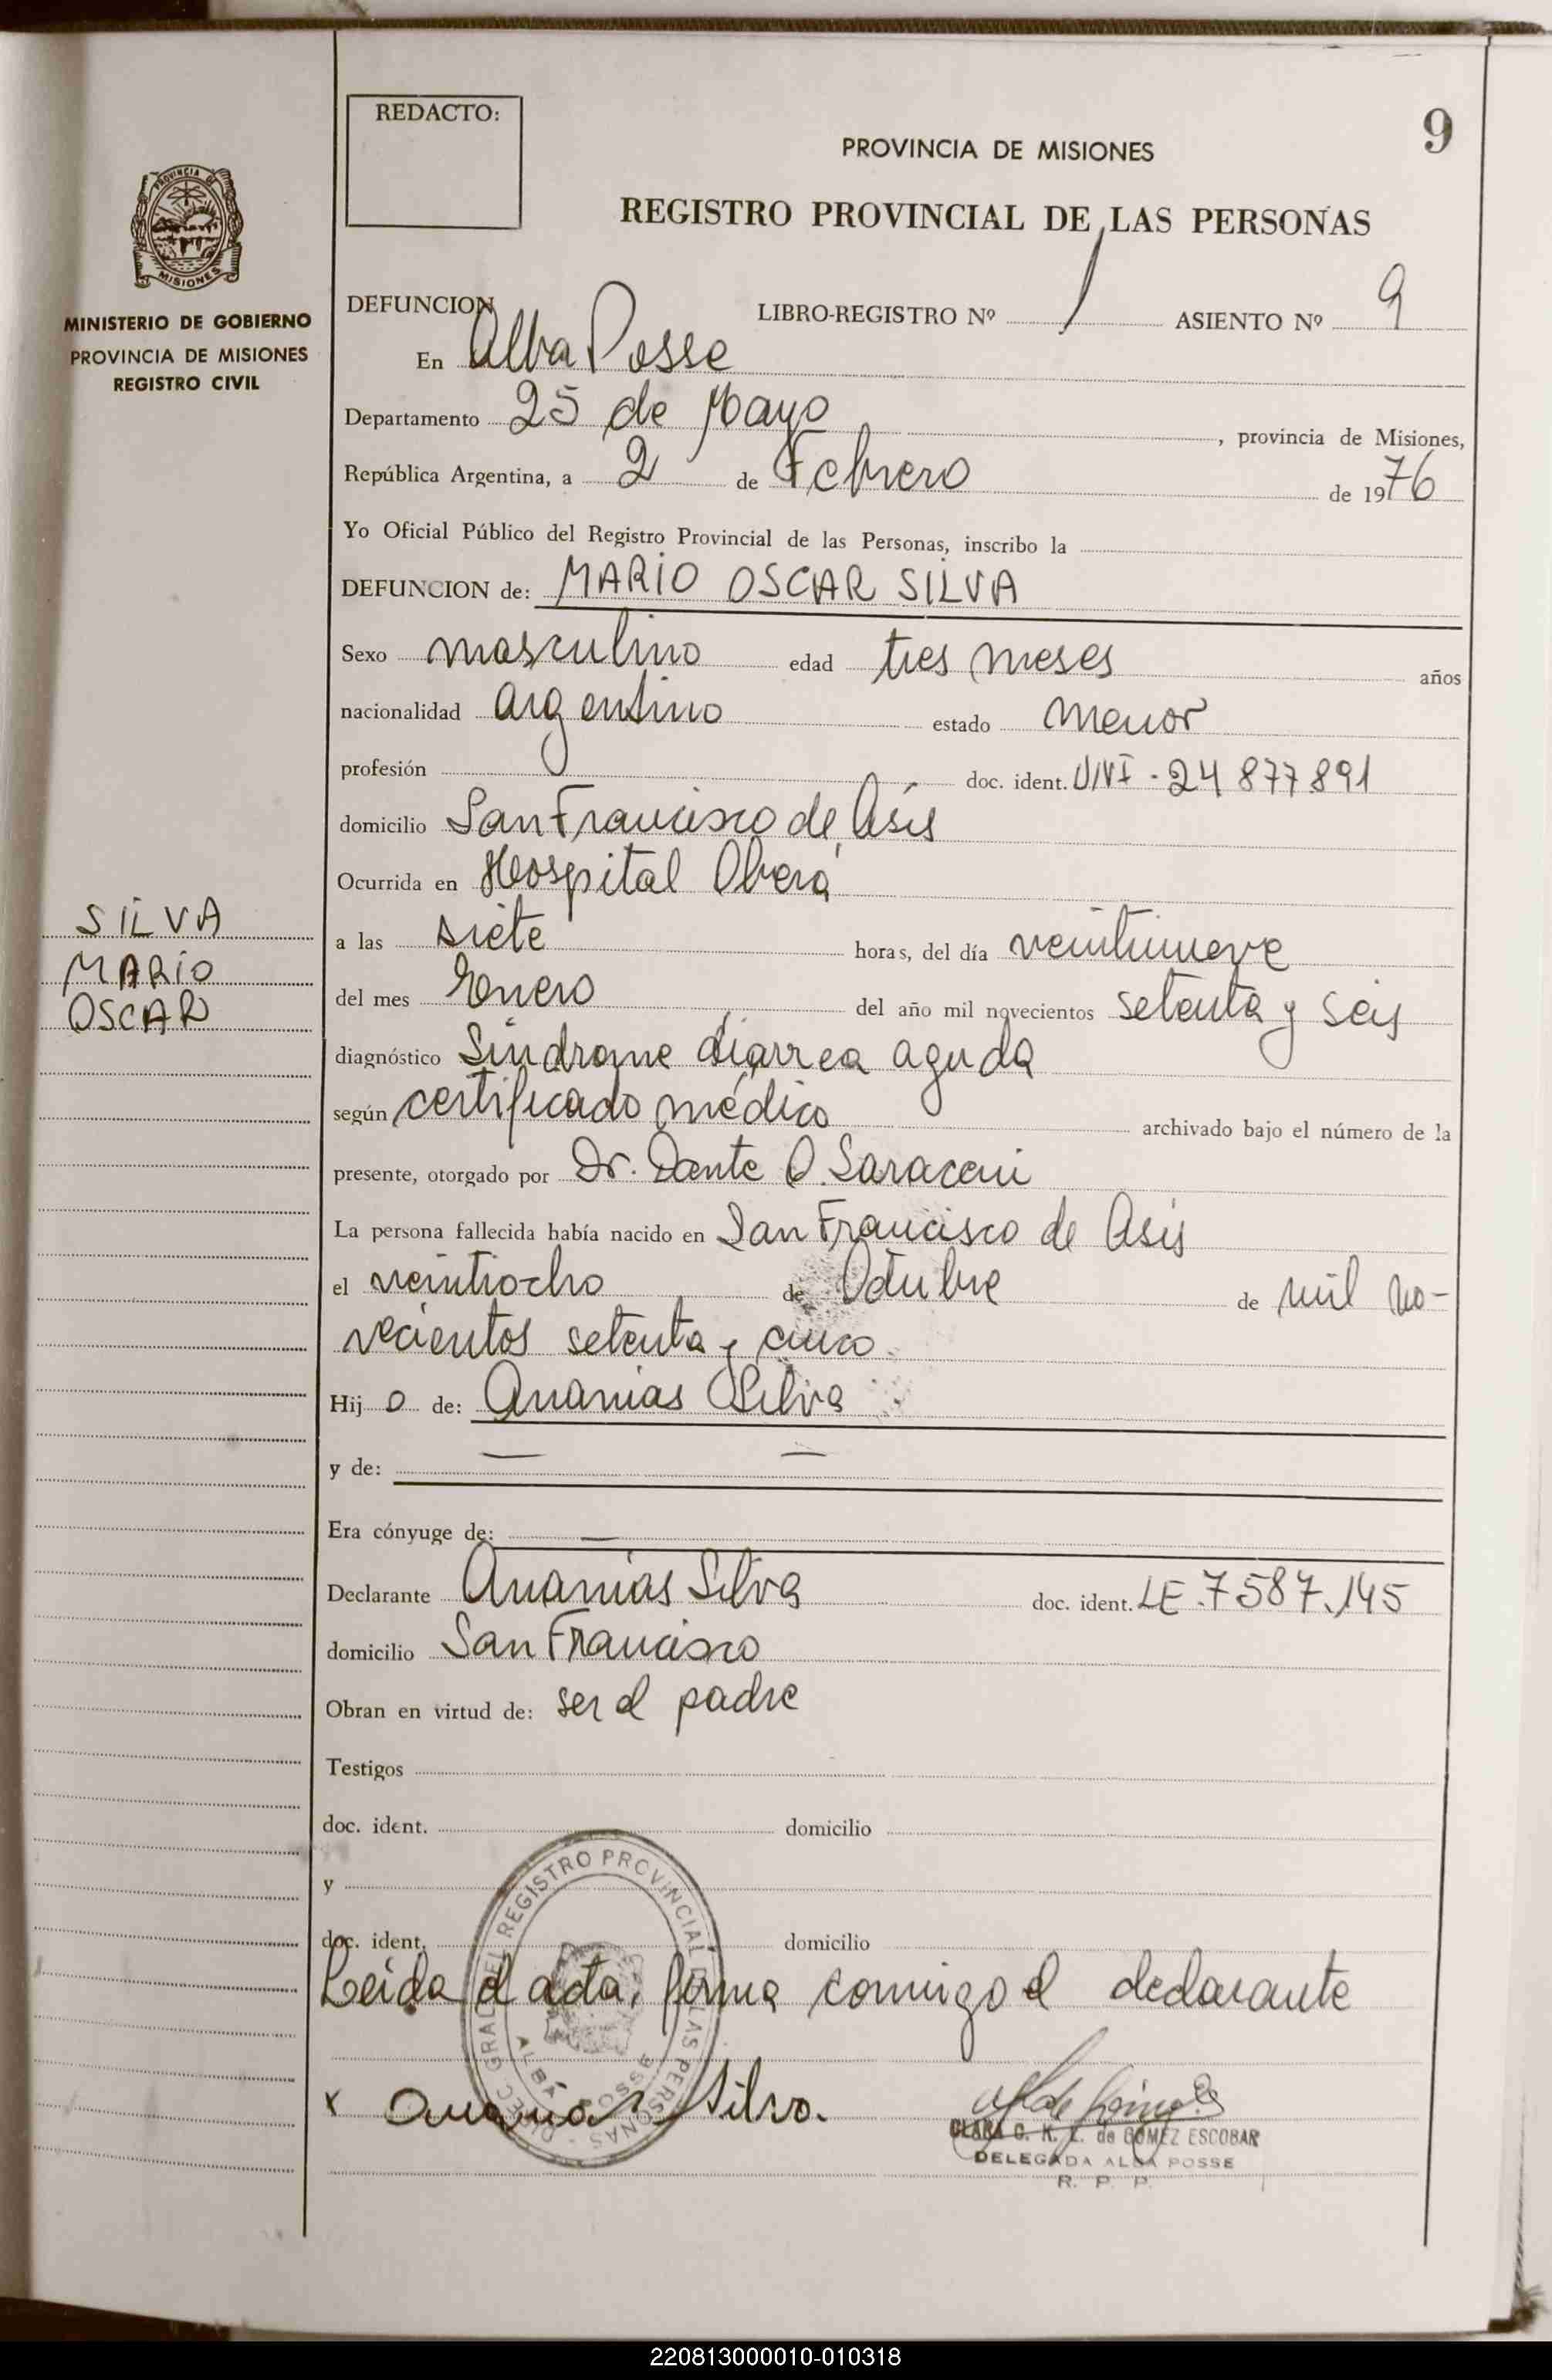 REDACTO:
9
PROVINCIA DE MISIONES
REGISTRO PROVINCIAL DE LAS PERSONAS
PROVINCIA DE
MISIONES
MINISTERIO DE GOBIERNO
PROVINCIA DE MISIONES
REGISTRO CIVIL
DEFUNCION LIBRO-REGISTRO Nº 1 ASIENTO Nº 9
En Alba Posse
Departamento 25 de Mayo, provincia de Misiones,
República Argentina, a 2 de Febrero de 1976
Yo Oficial Público del Registro Provincial de las Personas, inscribo la
DEFUNCION de: MARIO OSCAR SILVA
Sexo masculino edad tres meses años
nacionalidad argentino estado menor
profesión doc. ident. 24 877891
domicilio San Francisco de Asís
Ocurrida en Hospital Oberá
SILVA
MARIO
OSCAR
a las siete horas, del día veintinueve
del mes Enero del año mil novecientos setenta y seis
diagnóstico Síndrome diarrea aguda
según certificado médico archivado bajo el número de la
presente, otorgado por Dr. Dante O. Saraceni
La persona fallecida había nacido en San Francisco de Asís
el veintiocho de Octubre de mil no-
vecientos setenta y cinco.
Hij o de: Ananias Silva
y de: — —
Era cónyuge de: —
Declarante Ananias Silva doc. ident. LE.7587.145
domicilio San Francisco
Obran en virtud de: ser el padre
Testigos
doc. ident. domicilio
y
doc. ident. domicilio
Leída el acta, firma conmigo el declarante
x Ananias Silva.
REGISTRO PROVINCIAL DE LAS PERSONAS
ALBA POSSE
CLARA C. K. de GOMEZ ESCOBAR
DELEGADA ALBA POSSE
R. P. P.
220813000010-010318